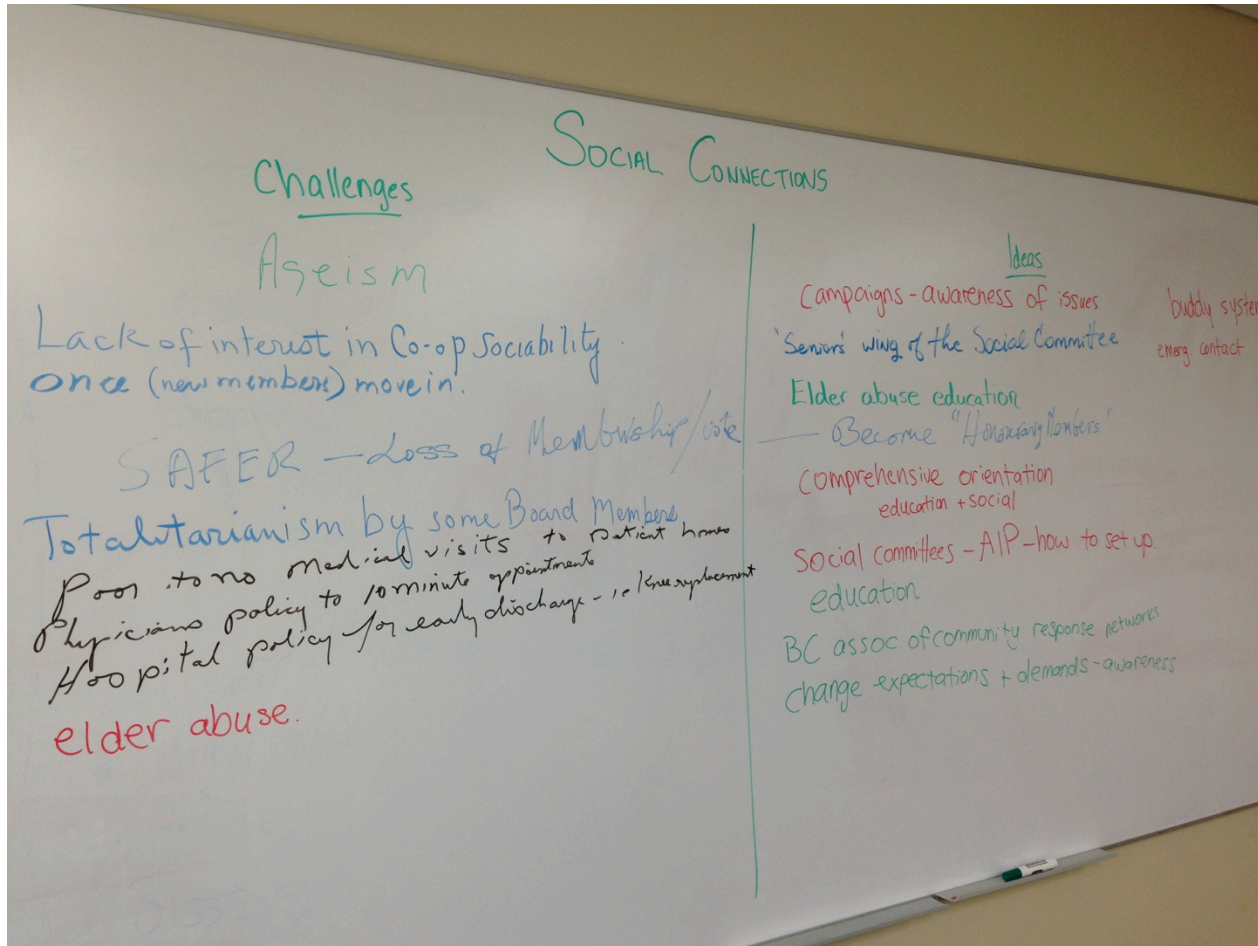 SOCIAL CONNECTIONS
Challenges
Ageism
Lack of interest in Co-op Sociability
once (new members) move in.
SAFER — Loss of Membership/vote
Totalitarianism by some Board Members
Poor to no medical visits to patient homes
Physicians policy to 10 minute appointments
Hospital policy for early discharge - ie knee replacement
elder abuse.
Ideas
Campaigns - awareness of issues
'Seniors' wing of the Social Committee
Elder abuse education
— Become "Honourary Members"
Comprehensive orientation
education + social
Social committees - AIP - how to set up
education
BC assoc of community response networks
change expectations + demands - awareness
buddy system
emerg. contact